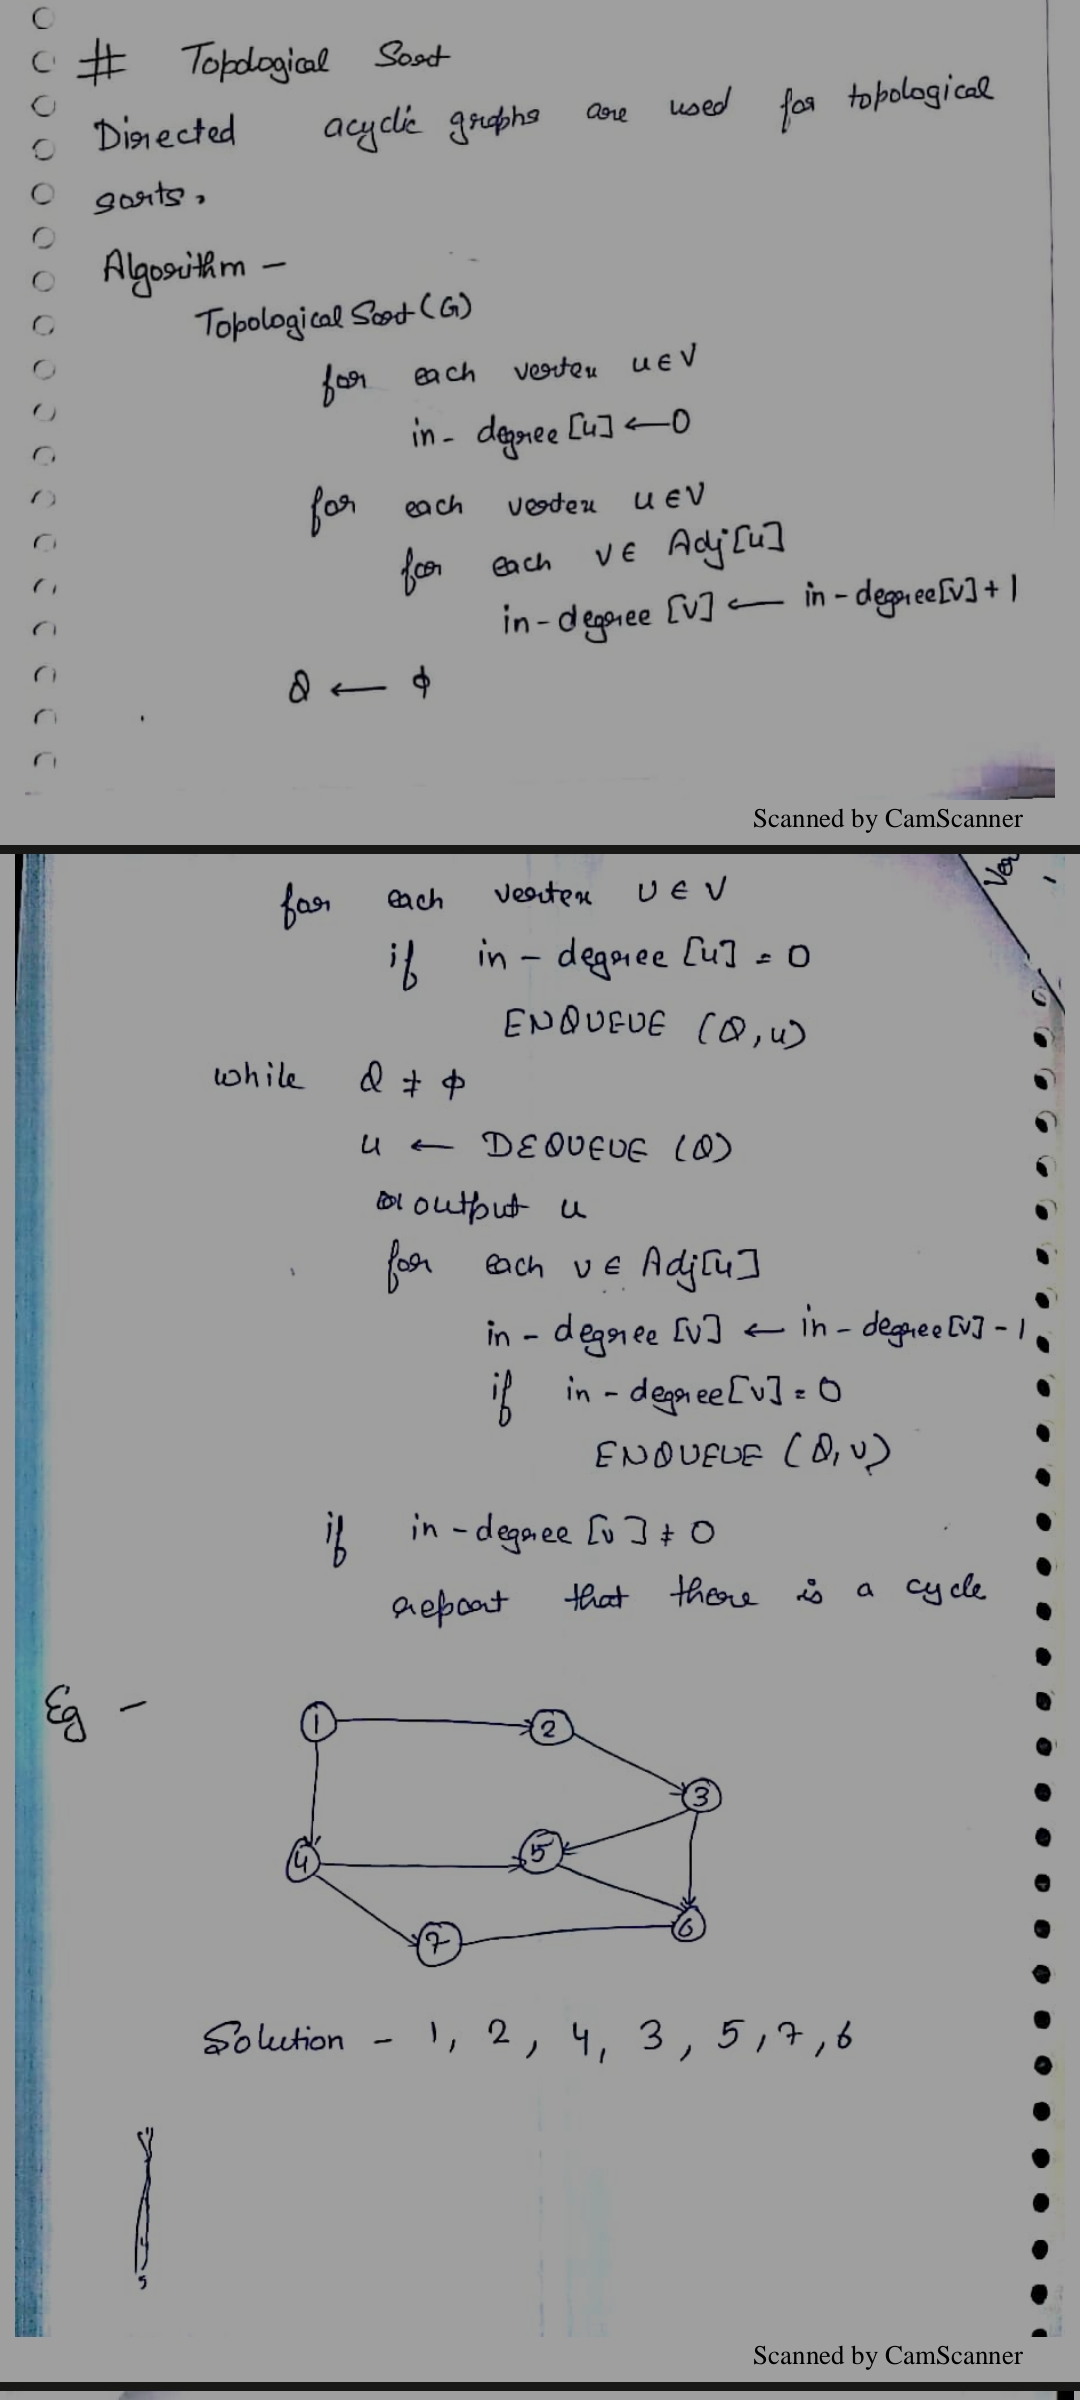 # Topological Sort
Directed acyclic graphs are used for topological
sorts.
Algorithm -
Topological Sort (G)
for each vertex u ∈ V
in - degree [u] ← 0
for each vertex u ∈ V
for each v ∈ Adj [u]
in - degree [v] ← in - degree[v] + 1
Q ← φ
Scanned by CamScanner
Ver
for each vertex u ∈ V
if in - degree [u] = 0
ENQUEUE (Q, u)
while Q ≠ φ
u ← DEQUEUE (Q)
output u
for each v ∈ Adj[u]
in - degree [v] ← in - degree[v] - 1
if in - degree[v] = 0
ENQUEUE (Q, v)
if in - degree [v] ≠ 0
report that there is a cycle
Eg -
1
2
3
4
5
6
7
Solution - 1, 2, 4, 3, 5, 7, 6
Scanned by CamScanner